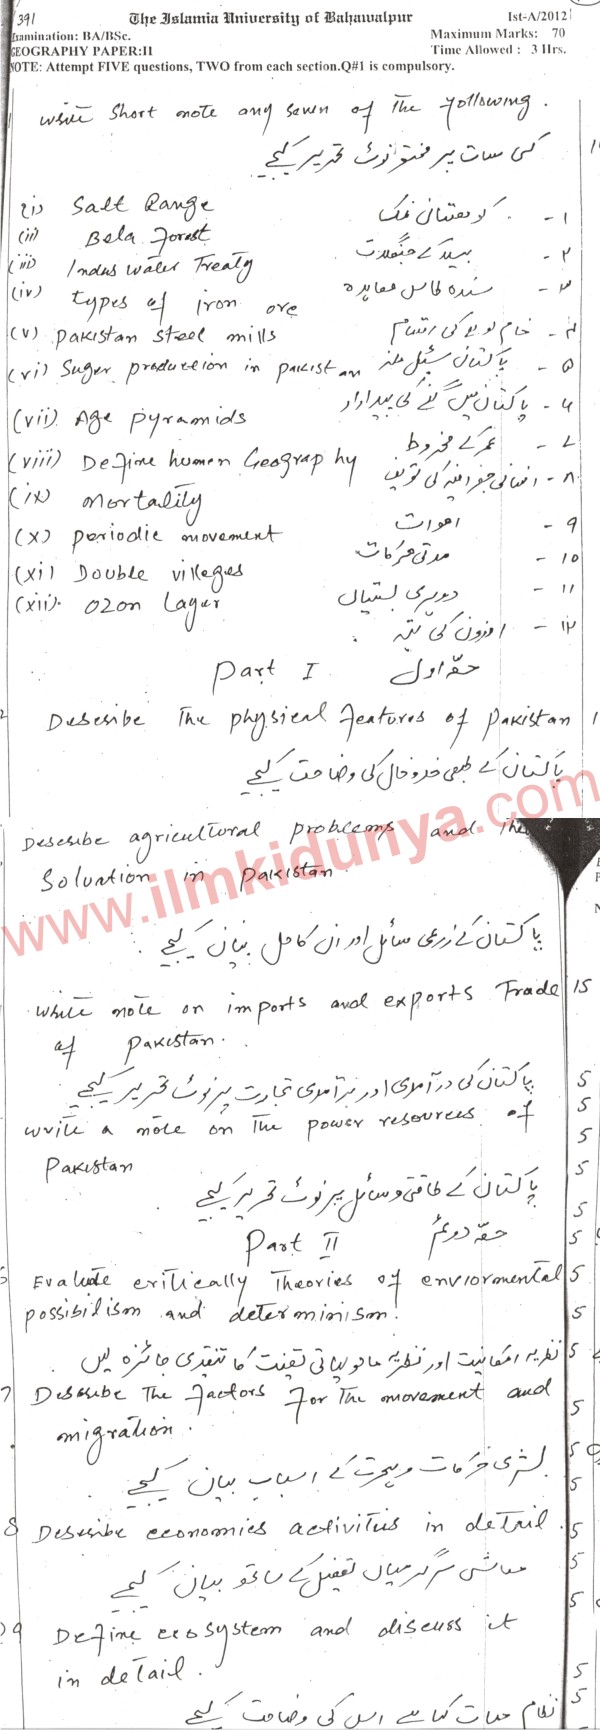 391 The Islamia University of Bahawalpur Ist-A/2012
Examination: BA/BSc. Maximum Marks: 70
GEOGRAPHY PAPER:II Time Allowed : 3 Hrs.
NOTE: Attempt FIVE questions, TWO from each section.Q#1 is compulsory.
write short note any seven of the following.
کسی سات پر مختصر نوٹ تحریر کیجیے
(i) Salt Range کوہستانی نمک ۱-
(ii) Bela Forest بیلہ کے جنگلات ۲-
(iii) Indus water Treaty سندھ طاس معاہدہ ۳-
(iv) types of iron ore خام لوہے کی اقسام ۴-
(v) pakistan steel mills پاکستان سٹیل ملز ۵-
(vi) Suger production in pakistan پاکستان میں گنے کی پیداوار ۶-
(vii) Age pyramids عمر کے مخروط ۷-
(viii) Define human Geography انسانی جغرافیہ کی تعریف ۸-
(ix) mortality اموات ۹-
(x) periodic movement مدتی حرکات ۱۰-
(xi) Double villeges دوہری بستیاں ۱۱-
(xii). Ozon Layur اوزون کی تہہ ۱۲-
Part I حصہ اول
2 Describe The physical features of pakistan
پاکستان کے طبعی خدوخال کی وضاحت کیجیے
Describe agricultural problems and the
Soluation in pakistan
پاکستان کے زرعی مسائل اور ان کا حل بیان کیجیے.
write note on imports and exports Trade 15
of pakistan.
پاکستان کی درآمدی اور برآمدی تجارت پر نوٹ تحریر کیجیے
write a note on The power resources of
Pakistan
پاکستان کے طاقتی وسائل پر نوٹ تحریر کیجیے
Part II حصہ دوئم
Evaluate critically Theories of enviormental
possibilism and determinism.
نظریہ امکانیت اور نظریہ ماحولیاتی تیقنت کا تنقیدی جائزہ لیں.
7 Describe The factors For The movement and
migration.
بشری حرکات و ہجرت کے اسباب بیان کیجیے.
8 Describe economies activitius in detail.
معاشی سرگرمیاں تفصیل کے ساتھ بیان کیجیے
9 Define ecosystem and discuss it
in detail.
نظام حیات کیا ہے اس کی وضاحت کیجیے
www.ilmkidunya.com